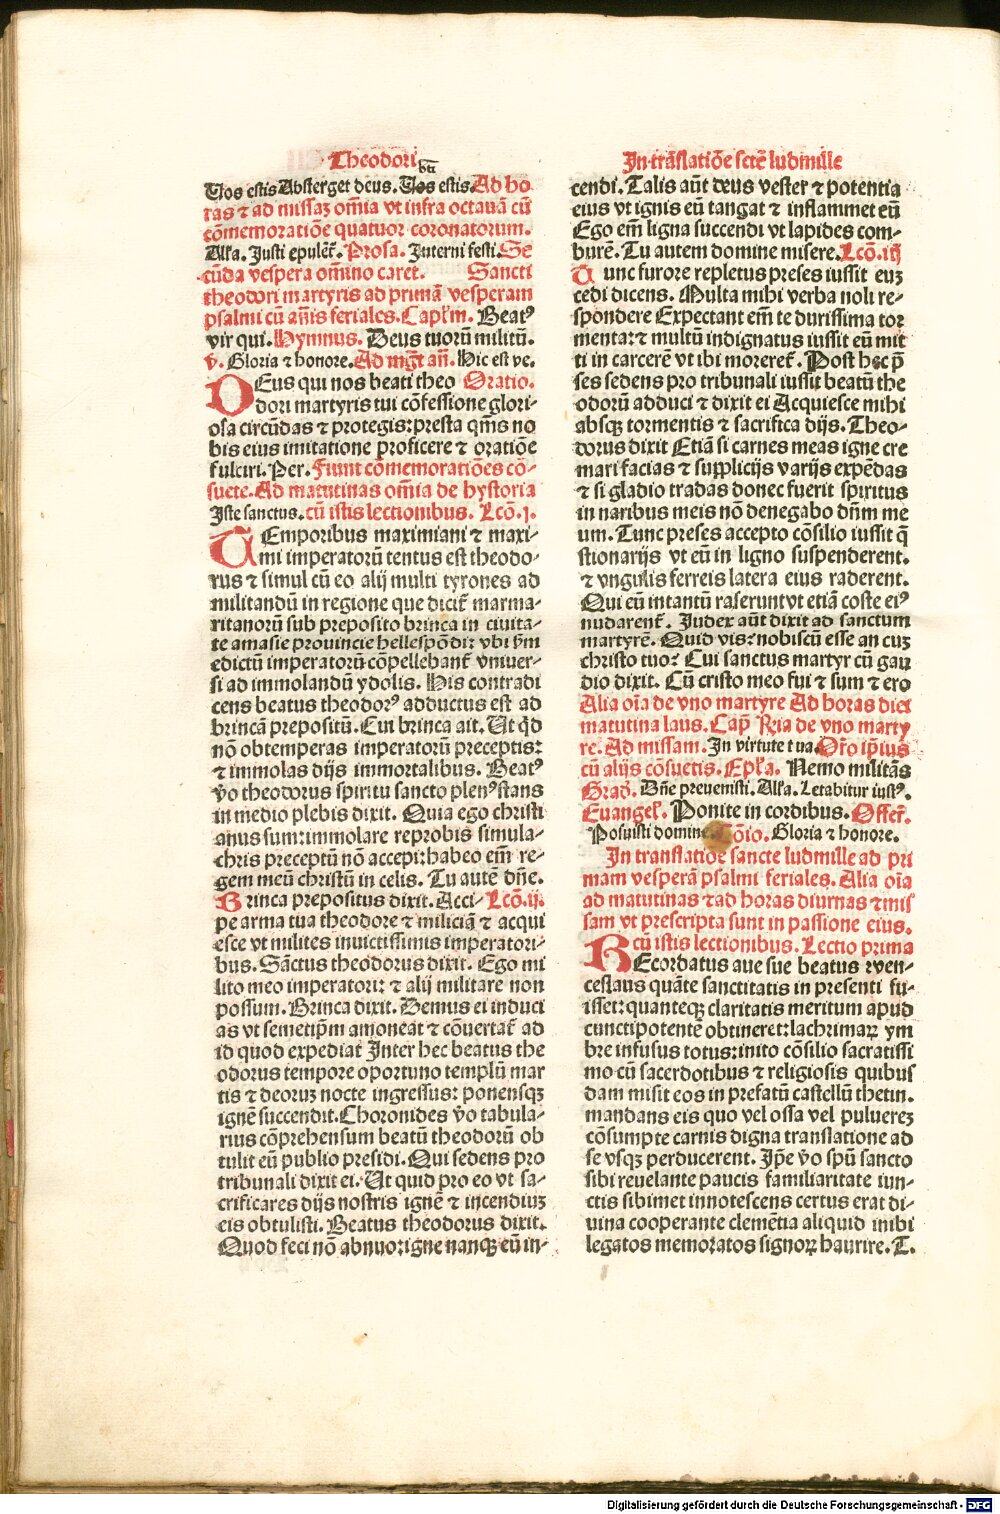 Theodori
btī
Uos estis Absterget deus. Uos estis. Ad ho
ras ⁊ ad missaȝ om̄ia vt infra octauā cū
cōmemoratiōne quatuor coronatorum.
Alľa. Justi epulent̄. Prosa. Interni festi. Se
cūda vespera om̄ino caret. Sancti
theodori martyris ad primā vesperam
psalmi cū an̄is feriales. Capľm. Beatꝰ
vir qui. Hymnus. Deus tuorū militū.
v̄. Gloria ⁊ honore. Ad mg̅t an̄. Hic est ve.
DEus qui nos beati theo Oratio.
dori martyris tui cōfessione glori-
osa circūdas ⁊ protegis: presta qm̄s no
bis eius imitatione proficere ⁊ oratiōe
fulciri. Per. Fiunt cōmemoratiōes cō-
suete. Ad matutinas om̄ia de hystoria
Iste sanctus. cū istis lectionibus. Lcō. j.
TEmporibus maximiani ⁊ maxi-
mi imperatorū tentus est theodo-
rus ⁊ simul cū eo alij multi tyrones ad
militandū in regione que dicit̄ marma-
ritanorū sub preposito brinca in ciuita-
te amasie prouincie hellespōdi: vbi ꝑm
edictū imperatorū cōpellebant̄ vniuer-
si ad immolandū ydolis. His contradi
cens beatus theodorꝰ adductus est ad
brincā prepositū. Cui brinca ait. Ut qd
nō obtemperas imperatorū preceptis:
⁊ immolas dijs immortalibus. Beatꝰ
v̄o theodorus spiritu sancto plenꝰ stans
in medio plebis dixit. Quia ego christi
anus sum: immolare reprobis simula-
chris preceptū nō accepi: habeo em̄ re-
gem meū christū in celis. Tu autē dn̄e.
Brinca prepositus dixit. Acci- Lcō. ij.
pe arma tua theodore ⁊ miliciā ⁊ acqui
esce vt milites inuictissimis imperatori-
bus. Sāctus theodorus dixit. Ego mi
lito meo imperatori: ⁊ alij militare non
possum. Brinca dixit. Demus ei induci
as vt semetip̄m amoneat ⁊ cōuertat̄ ad
id quod expediat Inter hec beatus the
odorus tempore oportuno templū mar
tis ⁊ deoruȝ nocte ingressus: ponensqȝ
ignē succendit. Choronides v̄o tabula-
rius cōprehensum beatū theodorū ob
tulit eū publio presidi. Qui sedens pro
tribunali dixit ei. Ut quid pro eo vt sa-
crificares dijs nostris ignē ⁊ incendiuȝ
eis obtulisti. Beatus theodorus dixit.
Quod feci nō abnuo: igne nanqȝ eū in-
In trāslatiōe scte̅ ludmille
cendi. Talis aūt deus vester ⁊ potentia
eius vt ignis eū tangat ⁊ inflammet eū
Ego em̄ ligna succendi vt lapides com-
burē. Tu autem domine misere. Lcō. iij
Tunc furore repletus preses iussit euȝ
cedi dicens. Multa mihi verba noli re-
spondere Expectant em̄ te durissima tor
menta: ⁊ multū indignatus iussit eū mit
ti in carcerē vt ibi moreret̄. Post hec p̄
ses sedens pro tribunali iussit beatū the
odorū adduci ⁊ dixit ei Acquiesce mihi
absqȝ tormentis ⁊ sacrifica dijs. Theo-
dorus dixit Etiā si carnes meas igne cre
mari facias ⁊ supplicijs varijs expēdas
⁊ si gladio tradas donec fuerit spiritus
in naribus meis nō denegabo dn̄m me
um. Tunc preses accepto cōsilio iussit q̄
stionarijs vt eū in ligno suspenderent.
⁊ vngulis ferreis latera eius raderent.
Qui eū intantū raserunt vt etiā coste eiꝰ
nudarent̄. Judex aūt dixit ad sanctum
martyrē. Quid vis: nobiscū esse an cuȝ
christo tuo? Cui sanctus martyr cū gau
dio dixit. Cū cristo meo fui ⁊ sum ⁊ ero
Alia oīa de vno martyre Ad horas diei
matutina laus. Cap̄ Ria de vno marty
re. Ad missam. In virtute tua. Or̄o ip̄ius
cū alijs cōsuetis. Epľa. Nemo militās
Grad̄. Dn̄e preuenisti. Alľa. Letabitur iustꝰ.
Euangel̄. Ponite in cordibus. Offer̄.
Posuisti domine Cōio. Gloria ⁊ honore.
In translatiōe sancte ludmille ad pri
mam vesperā psalmi feriales. Alia oīa
ad matutinas ⁊ ad horas diurnas ⁊ mis
sam vt prescripta sunt in passione eius.
cū istis lectionibus. Lectio prima
REcordatus aue sue beatus wen-
ceslaus quāte sanctitatis in presenti fu-
isset: quanteqȝ claritatis meritum apud
cunctipotentē obtineret: lachrimaꝝ ym
bre infusus totus: inito cōsilio sacratissi
mo cū sacerdotibus ⁊ religiosis quibus
dam misit eos in prefatū castellū thetin.
mandans eis quo vel ossa vel puluereȝ
cōsumpte carnis digna translatione ad
se vsqȝ perducerent. Ip̄e v̄o spū sancto
sibi reuelante paucis familiaritate iun-
ctis sibimet innotescens certus erat di-
uina cooperante clemētia aliquid inibi
legatos memoratos signoꝝ haurire. T.
Digitalisierung gefördert durch die Deutsche Forschungsgemeinschaft - DFG